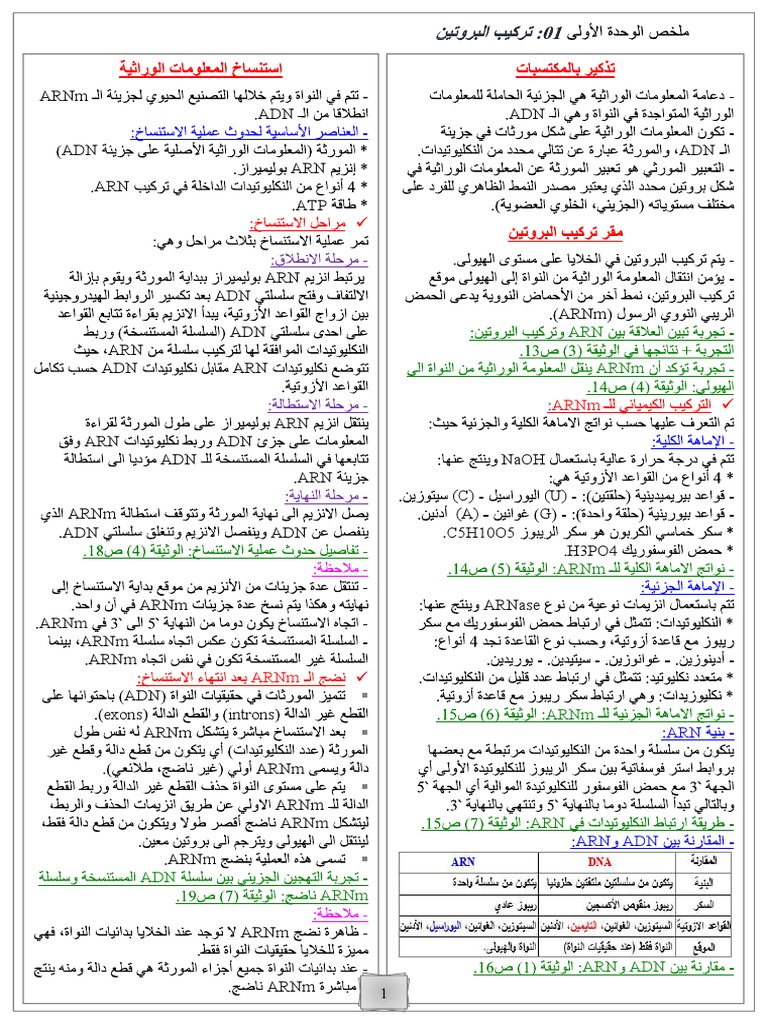 ملخص الوحدة الأولى 01: تركيب البروتين
تذكير بالمكتسبات
- دعامة المعلومات الوراثية هي الجزئية الحاملة للمعلومات
الوراثية المتواجدة في النواة وهي الـ ADN.
- تكون المعلومات الوراثية على شكل مورثات في جزيئة
الـ ADN، والمورثة عبارة عن تتالي محدد من النكليوتيدات.
- التعبير المورثي هو تعبير المورثة عن المعلومات الوراثية في
شكل بروتين محدد الذي يعتبر مصدر النمط الظاهري للفرد على
مختلف مستوياته (الجزيئي، الخلوي العضوية).
مقر تركيب البروتين
- يتم تركيب البروتين في الخلايا على مستوى الهيولى.
- يؤمن انتقال المعلومة الوراثية من النواة إلى الهيولى موقع
تركيب البروتين، نمط آخر من الأحماض النووية يدعى الحمض
الريبي النووي الرسول (ARNm).
- تجربة تبين العلاقة بين ARN وتركيب البروتين:
التجربة + نتائجها في الوثيقة (3) ص13.
- تجربة تؤكد أن ARNm ينقل المعلومة الوراثية من النواة الى
الهيولي: الوثيقة (4) ص14.
✓ التركيب الكيميائي للـ ARNm:
تم التعرف عليها حسب نواتج الاماهة الكلية والجزئية حيث:
- الإماهة الكلية:
تتم في درجة حرارة عالية باستعمال NaOH وينتج عنها:
* 4 أنواع من القواعد الأزوتية هي:
- قواعد بيريميدينية (حلقتين): - (U) اليوراسيل - (C) سيتوزين.
- قواعد بيورينية (حلقة واحدة): - (G) غوانين - (A) أدنين.
* سكر خماسي الكربون هو سكر الريبوز C5H10O5.
* حمض الفوسفوريك H3PO4.
- نواتج الاماهة الكلية للـ ARNm: الوثيقة (5) ص14.
- الإماهة الجزئية:
تتم باستعمال انزيمات نوعية من نوع ARNase وينتج عنها:
* النكليوتيدات: تتمثل في ارتباط حمض الفوسفوريك مع سكر
ريبوز مع قاعدة أزوتية، وحسب نوع القاعدة نجد 4 أنواع:
- أدينوزين. - غوانوزين. - سيتيدين. - يوريدين.
* متعدد نكليوتيد: تتمثل في ارتباط عدد قليل من النكليوتيدات.
* نكليوزيدات: وهي ارتباط سكر ريبوز مع قاعدة أزوتية.
- نواتج الاماهة الجزئية للـ ARNm: الوثيقة (6) ص15.
- بنية ARN:
يتكون من سلسلة واحدة من النكليوتيدات مرتبطة مع بعضها
بروابط استر فوسفاتية بين سكر الريبوز للنكليوتيدة الأولى أي
الجهة 3` مع حمض الفوسفور للنكليوتيدة الموالية أي الجهة 5`
وبالتالي تبدأ السلسلة دوما بالنهاية 5` وتنتهي بالنهاية 3`.
- طريقة ارتباط النكليوتيدات في ARN: الوثيقة (7) ص15.
- المقارنة بين ADN وARN:
المقارنة DNA ARN
البنية يتكون من سلسلتين ملتفتين حلزونيا يتكون من سلسلة واحدة
السكر ريبوز منقوص الأكسجين ريبوز عادي
القواعد الازوتية السيتوزين، الغوانين، التايمين، الأدنين السيتوزين، الغوانين، اليوراسيل، الأدنين
الموقع النواة فقط (عند حقيقيات النواة) النواة والهيولى.
- مقارنة بين ADN وARN: الوثيقة (1) ص16.
استنساخ المعلومات الوراثية
- تتم في النواة ويتم خلالها التصنيع الحيوي لجزيئة الـ ARNm
انطلاقا من الـ ADN.
- العناصر الأساسية لحدوث عملية الاستنساخ:
* المورثة (المعلومات الوراثية الأصلية على جزيئة ADN)
* إنزيم ARN بوليميراز.
* 4 أنواع من النكليوتيدات الداخلة في تركيب ARN.
* طاقة ATP.
✓ مراحل الاستنساخ:
تمر عملية الاستنساخ بثلاث مراحل وهي:
- مرحلة الانطلاق:
يرتبط انزيم ARN بوليميراز ببداية المورثة ويقوم بإزالة
الالتفاف وفتح سلسلتي ADN بعد تكسير الروابط الهيدروجينية
بين ازواج القواعد الأزوتية، يبدأ الانزيم بقراءة تتابع القواعد
على احدى سلسلتي ADN (السلسلة المستنسخة) وربط
النكليوتيدات الموافقة لها لتركيب سلسلة من ARN، حيث
تتوضع نكليوتيدات ARN مقابل نكليوتيدات ADN حسب تكامل
القواعد الأزوتية.
- مرحلة الاستطالة:
ينتقل انزيم ARN بوليميراز على طول المورثة لقراءة
المعلومات على جزئ ADN وربط نكليوتيدات ARN وفق
تتابعها في السلسلة المستنسخة للـ ADN مؤديا الى استطالة
جزيئة ARN.
- مرحلة النهاية:
يصل الانزيم الى نهاية المورثة وتتوقف استطالة ARNm الذي
ينفصل عن ADN وينفصل الانزيم وتنغلق سلسلتي ADN.
- تفاصيل حدوث عملية الاستنساخ: الوثيقة (4) ص18.
- ملاحظة:
- تنتقل عدة جزيئات من الأنزيم من موقع بداية الاستنساخ إلى
نهايته وهكذا يتم نسخ عدة جزيئات ARNm في آن واحد.
- اتجاه الاستنساخ يكون دوما من النهاية 5` الى 3` في ARNm.
- السلسلة المستنسخة تكون عكس اتجاه سلسلة ARNm، بينما
السلسلة غير المستنسخة تكون في نفس اتجاه ARNm.
✓ نضج الـ ARNm بعد انتهاء الاستنساخ:
▪ تتميز المورثات في حقيقيات النواة (ADN) باحتوائها على
القطع غير الدالة (introns) والقطع الدالة (exons).
▪ بعد الاستنساخ مباشرة يتشكل ARNm له نفس طول
المورثة (عدد النكليوتيدات) أي يتكون من قطع دالة وقطع غير
دالة ويسمى ARNm أولي (غير ناضج، طلائعي).
▪ يتم على مستوى النواة حذف القطع غير الدالة وربط القطع
الدالة للـ ARNm الاولي عن طريق انزيمات الحذف والربط،
ليتشكل ARNm ناضج أقصر طولا ويتكون من قطع دالة فقط،
لينتقل الى الهيولى ويترجم الى بروتين معين.
▪ تسمى هذه العملية بنضج ARNm.
- تجربة التهجين الجزيئي بين سلسلة ADN المستنسخة وسلسلة
ARNm ناضج: الوثيقة (7) ص19.
- ملاحظة:
- ظاهرة نضج ARNm لا توجد عند الخلايا بدائيات النواة، فهي
مميزة للخلايا حقيقيات النواة فقط.
- عند بدائيات النواة جميع أجزاء المورثة هي قطع دالة ومنه ينتج
مباشرة ARNm ناضج.
1